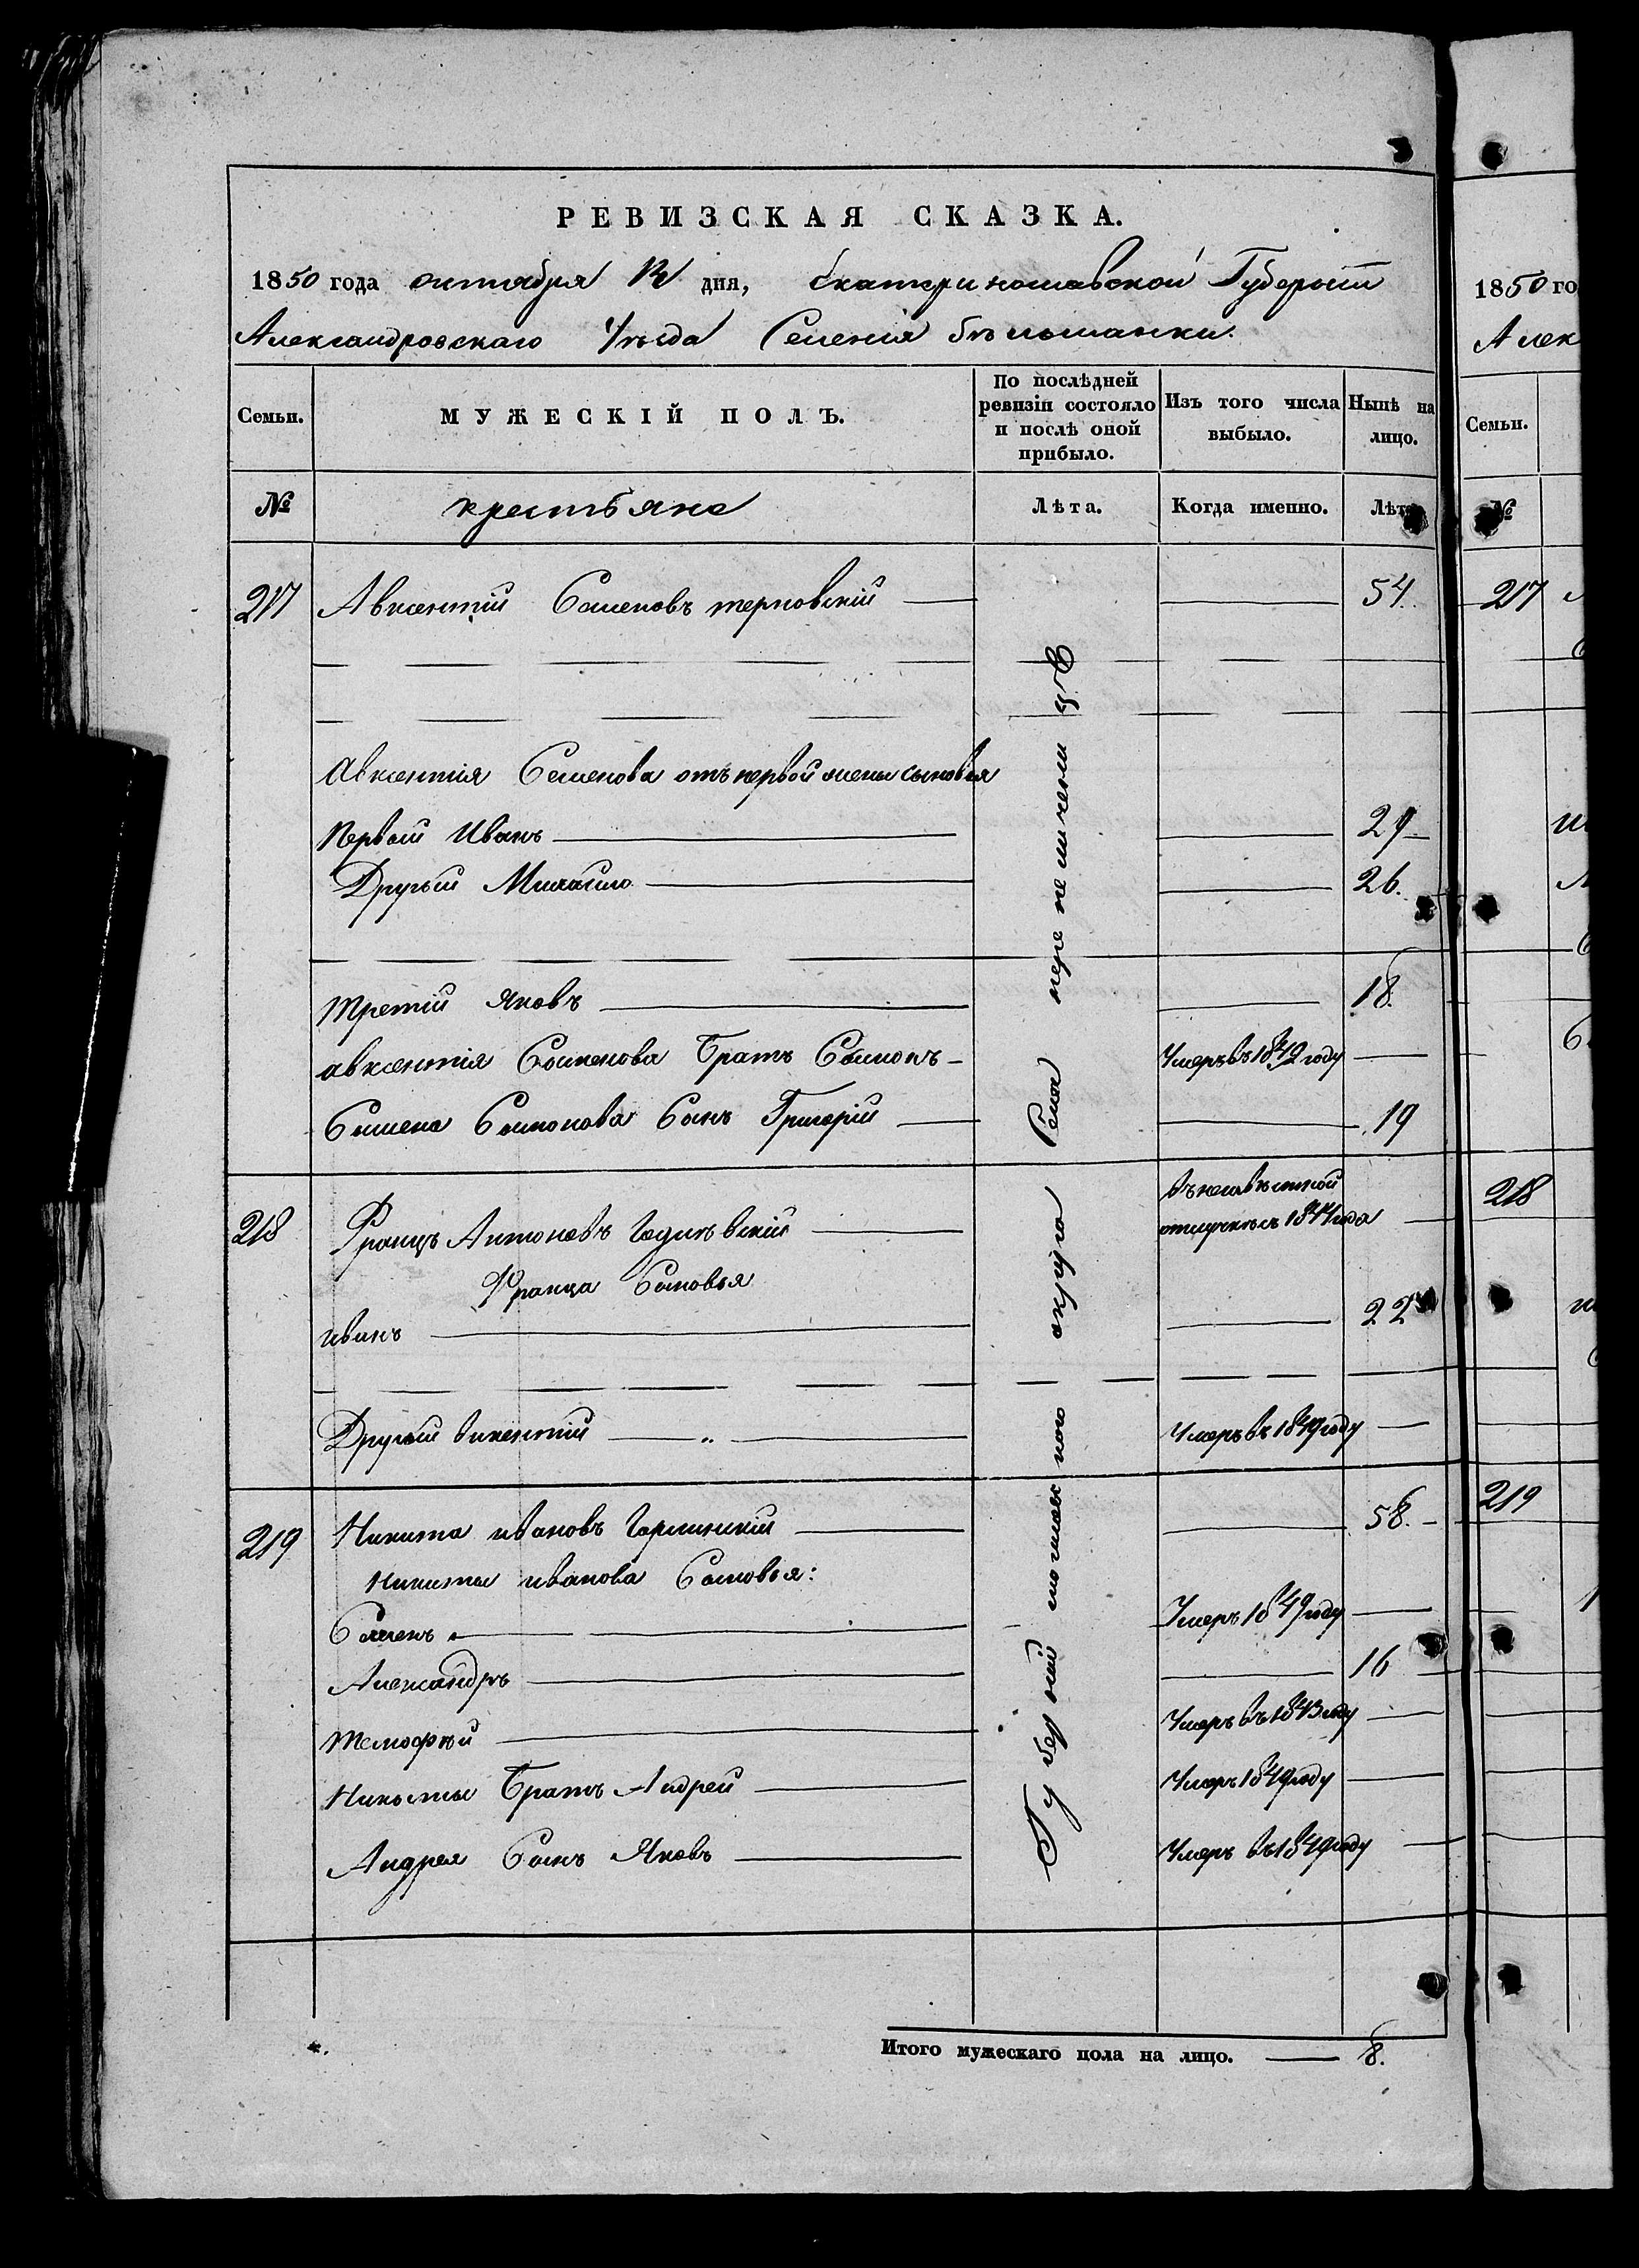 РЕВИЗСКАЯ СКАЗКА.
1850 года октября 12 дня, Екатеринославской Губернiи
Александровскаго Уѣзда Селенiя Бѣльманки.
Семьи.
МУЖЕСКІЙ ПОЛЪ.
По послѣдней ревизіи состояло и послѣ оной прибыло.
Изъ того числа выбыло.
Нынѣ на лицо.
№ крестьяне Лѣта. Когда именно. Лѣта
217 Авксентiй Семеновъ терновскiй 54.
Авксентiя Семенова отъ первой жены сыновья
Первый Иванъ 29
Другый Михайло 26.
третiй Яковъ 18.
авксентiя Семенова Братъ Семенъ Умеръ въ 1849 году
Семена Семенова Сынъ Григорiй 19
218 Францъ Антоновъ въ неизвѣстной отлучкѣ съ 1844 года
Франца Сыновья
иванъ 22
Другый викентiй Умеръ въ 1849 году
219 Никита ивановъ 58.
Никиты иванова Сыновья:
Семенъ Умеръ 1849 году
Александръ 16
темофѣй Умеръ въ 1843 году
Никиты Братъ Андрей Умеръ 1849 году
Андрея Сынъ Яковъ Умеръ въ 1849 году
Губернiи округа Села
Итого мужескаго пола на лицо. 8.
1850 го
Алек
Семьи.
№
217
218
219